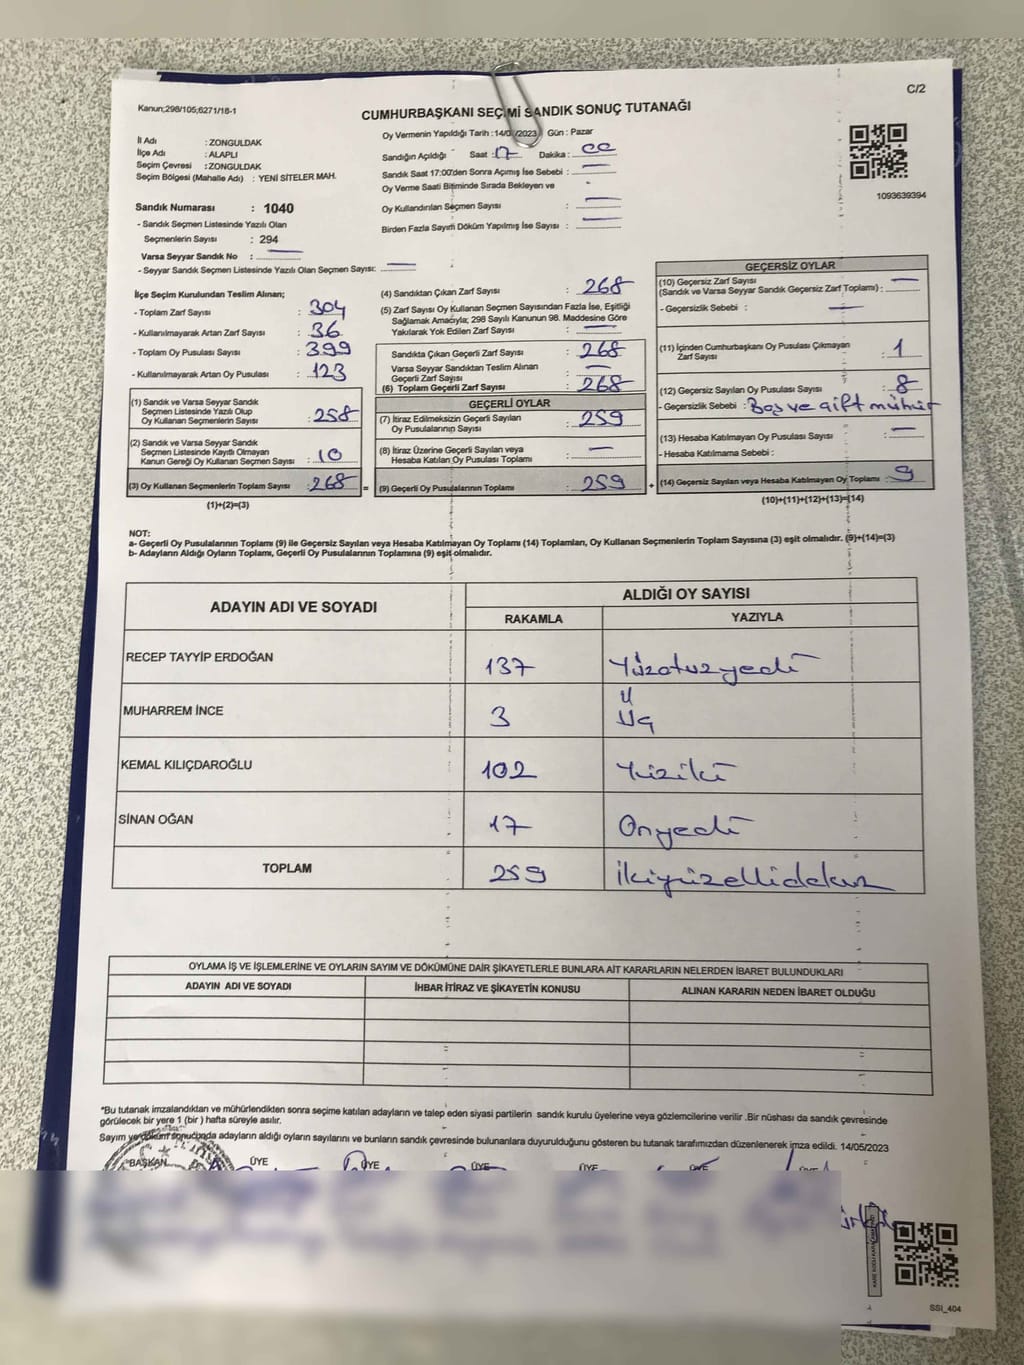 Kanun;298/105;6271/18-1
C/2
CUMHURBAŞKANI SEÇİMİ SANDIK SONUÇ TUTANAĞI
İl Adı : ZONGULDAK
İlçe Adı : ALAPLI
Seçim Çevresi : ZONGULDAK
Seçim Bölgesi (Mahalle Adı) : YENİ SİTELER MAH.
Sandık Numarası : 1040
- Sandık Seçmen Listesinde Yazılı Olan
Seçmenlerin Sayısı : 294
Varsa Seyyar Sandık No : —
- Seyyar Sandık Seçmen Listesinde Yazılı Olan Seçmen Sayısı: —
Oy Vermenin Yapıldığı Tarih :14/0 /2023 Gün : Pazar
Sandığın Açıldığı Saat : 17 Dakika : 00
Sandık Saat 17:00'den Sonra Açımış İse Sebebi : —
Oy Verme Saati Bitiminde Sırada Bekleyen ve
Oy Kullandırılan Seçmen Sayısı : —
Birden Fazla Sayım Döküm Yapılmış İse Sayısı : —
1093639394
İlçe Seçim Kurulundan Teslim Alınan;
- Toplam Zarf Sayısı : 304
- Kullanılmayarak Artan Zarf Sayısı : 36
- Toplam Oy Pusulası Sayısı : 399
- Kullanılmayarak Artan Oy Pusulası : 123
(1) Sandık ve Varsa Seyyar Sandık
Seçmen Listesinde Yazılı Olup
Oy Kullanan Seçmenlerin Sayısı : 258
(2) Sandık ve Varsa Seyyar Sandık
Seçmen Listesinde Kayıtlı Olmayan
Kanun Gereği Oy Kullanan Seçmen Sayısı : 10
(3) Oy Kullanan Seçmenlerin Toplam Sayısı : 268 =
(1)+(2)=(3)
(4) Sandıktan Çıkan Zarf Sayısı : 268
(5) Zarf Sayısı Oy Kullanan Seçmen Sayısından Fazla İse, Eşitliği
Sağlamak Amacıyla; 298 Sayılı Kanunun 98. Maddesine Göre
Yakılarak Yok Edilen Zarf Sayısı : —
Sandıkta Çıkan Geçerli Zarf Sayısı : 268
Varsa Seyyar Sandıktan Teslim Alınan
Geçerli Zarf Sayısı : —
(6) Toplam Geçerli Zarf Sayısı : 268
GEÇERLİ OYLAR
(7) İtiraz Edilmeksizin Geçerli Sayılan
Oy Pusulalarının Sayısı : 259
(8) İtiraz Üzerine Geçerli Sayılan veya
Hesaba Katılan Oy Pusulası Toplamı : —
(9) Geçerli Oy Pusulalarının Toplamı : 259 +
GEÇERSİZ OYLAR
(10) Geçersiz Zarf Sayısı
(Sandık ve Varsa Seyyar Sandık Geçersiz Zarf Toplamı) : —
- Geçersizlik Sebebi : —
(11) İçinden Cumhurbaşkanı Oy Pusulası Çıkmayan
Zarf Sayısı : 1
(12) Geçersiz Sayılan Oy Pusulası Sayısı : 8
- Geçersizlik Sebebi : Boş ve çift mühür
(13) Hesaba Katılmayan Oy Pusulası Sayısı : —
- Hesaba Katılmama Sebebi :
(14) Geçersiz Sayılan veya Hesaba Katılmayan Oy Toplamı : 9
(10)+(11)+(12)+(13)=(14)
NOT:
a- Geçerli Oy Pusulalarının Toplamı (9) ile Geçersiz Sayılan veya Hesaba Katılmayan Oy Toplamı (14) Toplamları, Oy Kullanan Seçmenlerin Toplam Sayısına (3) eşit olmalıdır. (9)+(14)=(3)
b- Adayların Aldığı Oyların Toplamı, Geçerli Oy Pusulalarının Toplamına (9) eşit olmalıdır.
ADAYIN ADI VE SOYADI ALDIĞI OY SAYISI
RAKAMLA YAZIYLA
RECEP TAYYİP ERDOĞAN 137 Yüzotuzyedi
MUHARREM İNCE 3 Üç
KEMAL KILIÇDAROĞLU 102 Yüziki
SİNAN OĞAN 17 Onyedi
TOPLAM 259 İkiyüzellidokuz
OYLAMA İŞ VE İŞLEMLERİNE VE OYLARIN SAYIM VE DÖKÜMÜNE DAİR ŞİKAYETLERLE BUNLARA AİT KARARLARIN NELERDEN İBARET BULUNDUKLARI
ADAYIN ADI VE SOYADI İHBAR İTİRAZ VE ŞİKAYETİN KONUSU ALINAN KARARIN NEDEN İBARET OLDUĞU
*Bu tutanak imzalandıktan ve mühürlendikten sonra seçime katılan adayların ve talep eden siyasi partilerin sandık kurulu üyelerine veya gözlemcilerine verilir .Bir nüshası da sandık çevresinde
görülecek bir yere 1 (bir ) hafta süreyle asılır.
Sayım ve döküm sonucunda adayların aldığı oyların sayılarını ve bunların sandık çevresinde bulunanlara duyurulduğunu gösteren bu tutanak tarafımızdan düzenlenerek imza edildi. 14/05/2023
BAŞKAN ÜYE ÜYE ÜYE ÜYE ÜYE ÜYE
SSI_404